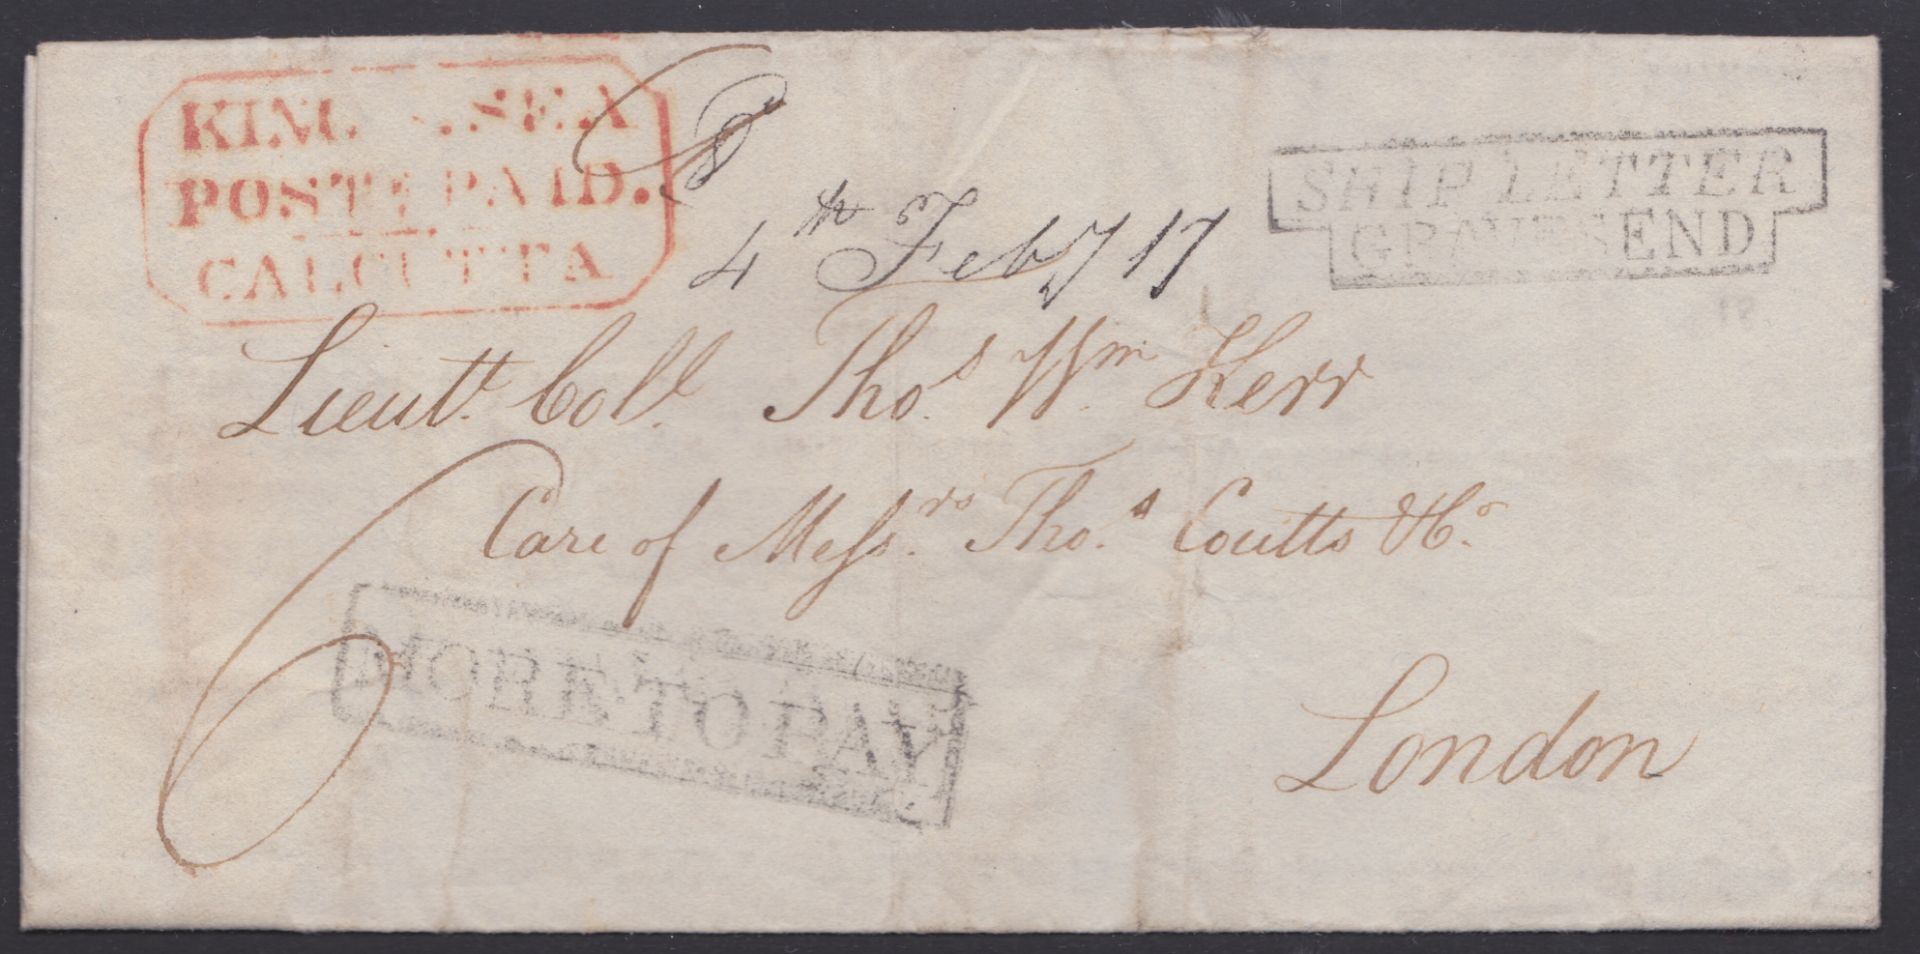 KING'S SEA
POSTE PAID.
CALCUTTA
SHIP LETTER
GRAVESEND
4th Feby 17
Lieutt. Coll. Thos. Wm. Kerr
Care of Messrs. Thos. Coutts & Co.
MORE TO PAY
London